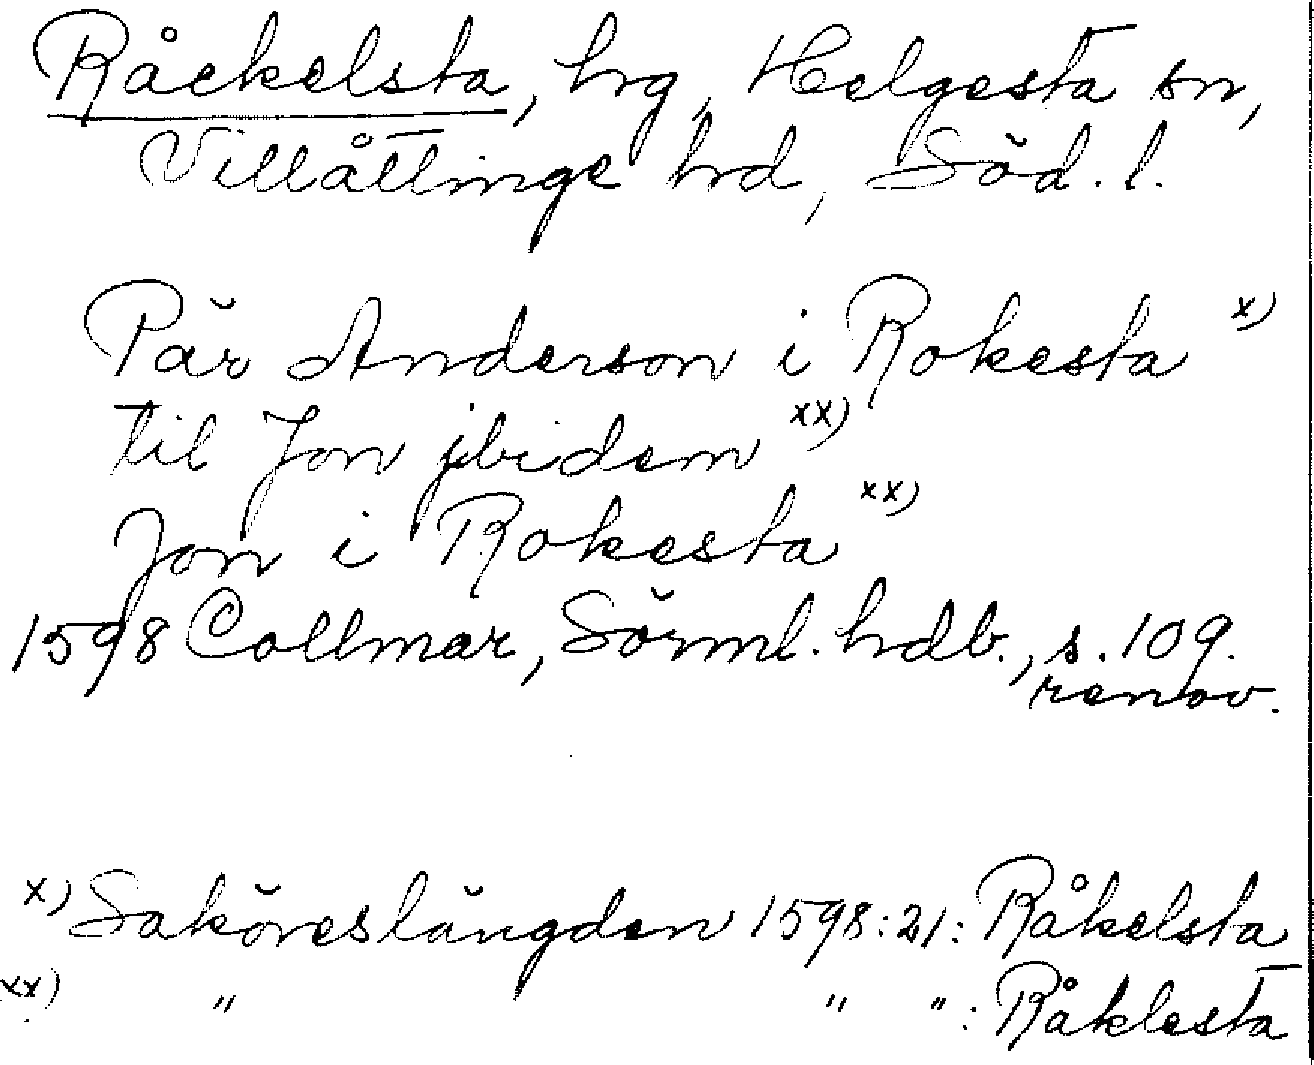 Råckelsta, hrg, Helgesta sn,
Villåttinge hrd, Söd. l.
Pär Anderson i Rokesta x)
til Jon jbidem xx)
Jon i Rokesta xx)
1598 Collmar, Sörml. hdb., s. 109.
renov.
x) Saköreslängden 1598:21: Råkelsta
xx) " " " : Råklesta